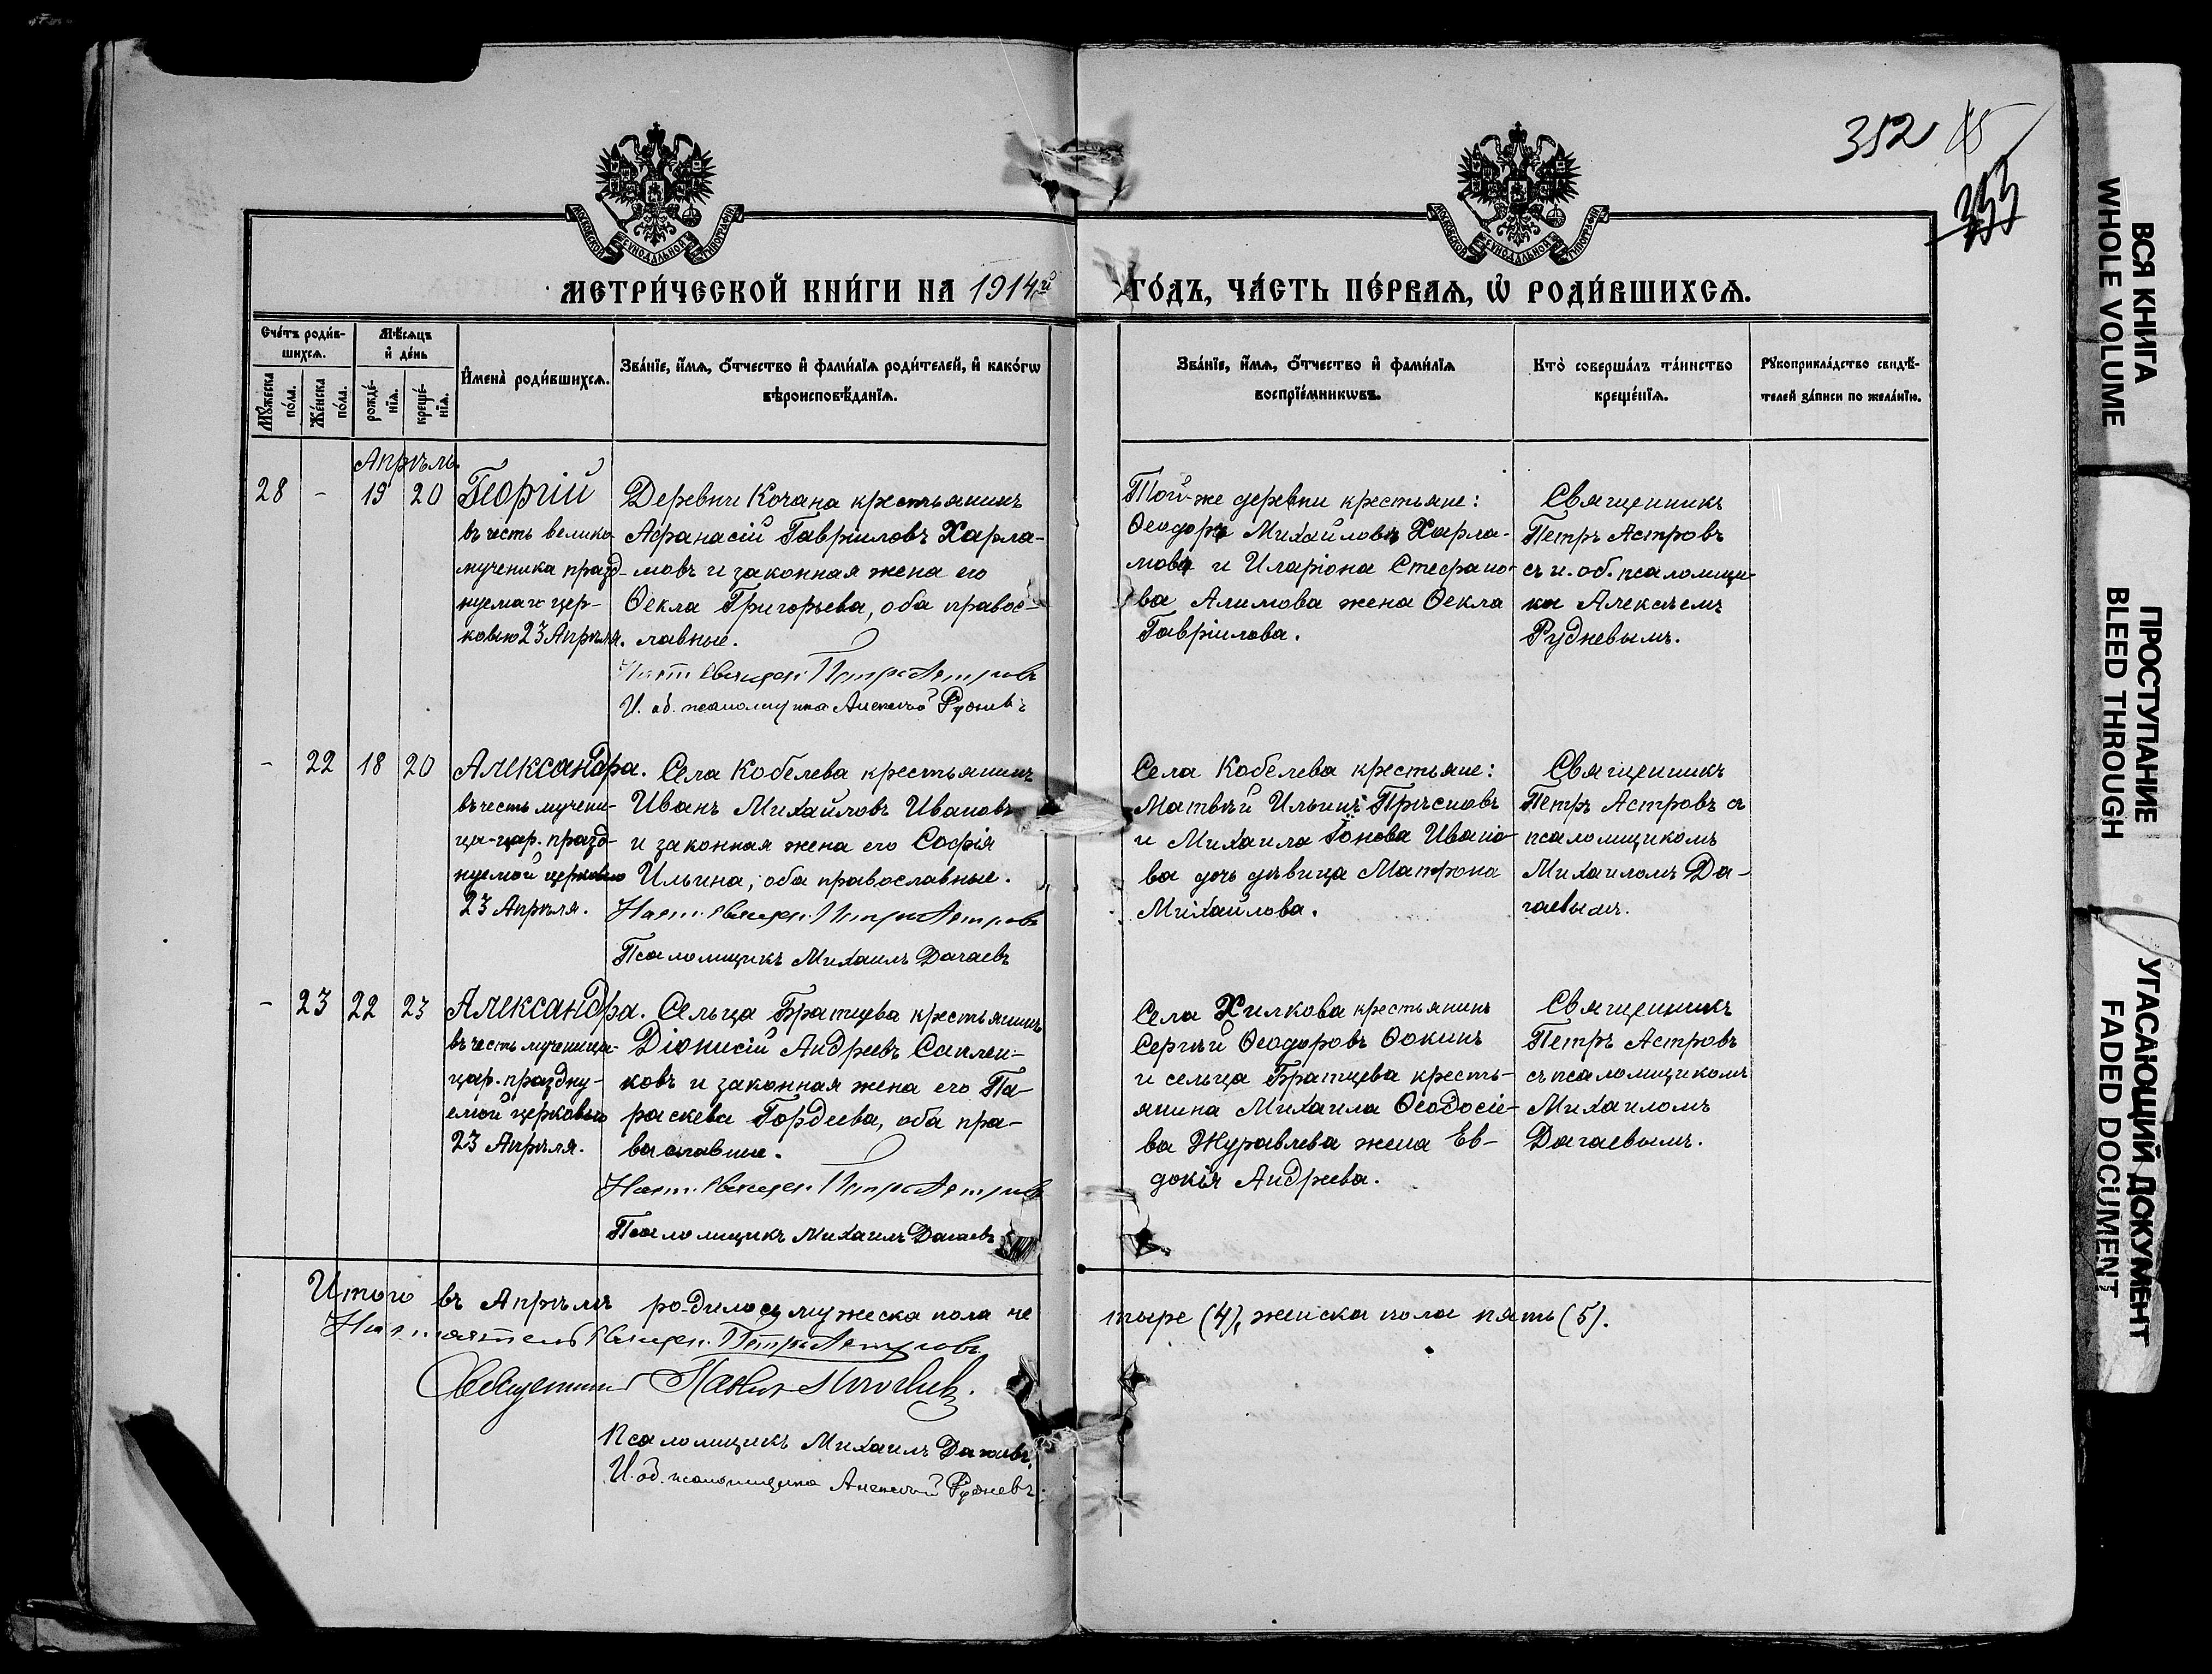 352
353
МОСКОВСКОЙ СѴНОДАЛЬНОЙ ТИПОГРАФІИ
МОСКОВСКОЙ СѴНОДАЛЬНОЙ ТИПОГРАФІИ
МЕТРИ́ЧЕСКОЙ КНИ́ГИ НА 1914й ГО́ДЪ, ЧА́СТЬ ПЕ́РВАѦ, Ѡ҆ РОДИ́ВШИХСѦ.
Сче́тъ роди́в-
шихсѧ.
Мꙋжеска по́ла.
Же́нска по́ла.
Мѣ́сѧцъ
и҆ де́нь
рожде́-
нїѧ.
креще́-
нїѧ.
И҆мена̀ роди́вшихсѧ.
Зва́нїе, и҆́мѧ, ѻ҆́тчество и҆ фами́лїѧ роди́телей, и҆ како́гѡ
вѣроисповѣ́данїѧ.
Зва́нїе, и҆́мѧ, ѻ҆́тчество и҆ фами́лїѧ
воспрїе́мникѡвъ.
Кто̀ соверша́лъ та́инство
креще́нїѧ.
Рꙋкоприкла́дство свидѣ́-
телей за́писи по жела́нїю.
Апрѣль.
28 - 19 20
Георгій
въ честь велико
мученика празд-
нуемаго цер-
ковію 23 Апрѣля.
Деревни Кочана крестьянинъ
Аѳанасій Гавріиловъ Харла-
мовъ и законная жена его
Ѳекла Григорьева, оба правос-
лавные.
Наст. священ. Петръ Астровъ
И. об. псаломщика Алексѣй Рудневъ
Той-же деревни крестьяне:
Ѳеодоръ Михайловъ Харла-
мовъ и Иларіона Стефано-
ва Алимова жена Ѳекла
Гавріилова.
Священникъ
Петръ Астровъ
съ и. об. псаломщи-
ка Алексѣемъ
Рудневымъ.
- 22 18 20
Александра.
въ честь мучени-
цы-цар. празд-
нуемой церковію
23 Апрѣля.
Села Кобелева крестьянинъ
Иванъ Михайловъ Ивановъ
и законная жена его Софія
Ильина, оба православные.
Наст. священ. Петръ Астровъ
Псаломщикъ Михаилъ Дагаевъ
Села Кобелева крестьяне:
Матвѣй Ильинъ Прѣсновъ
и Михаила Іонова Ивано-
ва дочь дѣвица Матрона
Михайлова.
Священникъ
Петръ Астровъ съ
псаломщикомъ
Михаиломъ Да-
гаевымъ.
- 23 22 23
Александра.
въ честь мученицы-
цар. праздну-
емой церковью
23 Апрѣля.
Сельца Братцева крестьянинъ
Діонисій Андреевъ Саплен-
ковъ и законная жена его Па-
раскева Гордеева, оба пра-
вославные.
Наст. священ. Петръ Астровъ
Псаломщикъ Михаилъ Дагаевъ
Села Хилкова крестьянинъ
Сергѣй Ѳеодоровъ Ѳокинъ
и сельца Братцева кресть-
янина Михаила Ѳеодосіе-
ва Журавлева жена Ев-
докія Андреева.
Священникъ
Петръ Астровъ
съ псаломщикомъ
Михаиломъ
Дагаевымъ.
Итого въ Апрѣлѣ родилось мужеска пола че
тыре (4), женска пола пять (5).
Настоятель священ. Петръ Астровъ
Священникъ Павелъ
Псаломщикъ Михаилъ Дагаевъ.
И. об. псаломщика Алексѣй Рудневъ.
ВСЯ КНИГА
WHOLE VOLUME
ПРОСТУПАНИЕ
BLEED THROUGH
УГАСАЮЩИЙ ДОКУМЕНТ
FADED DOCUMENT